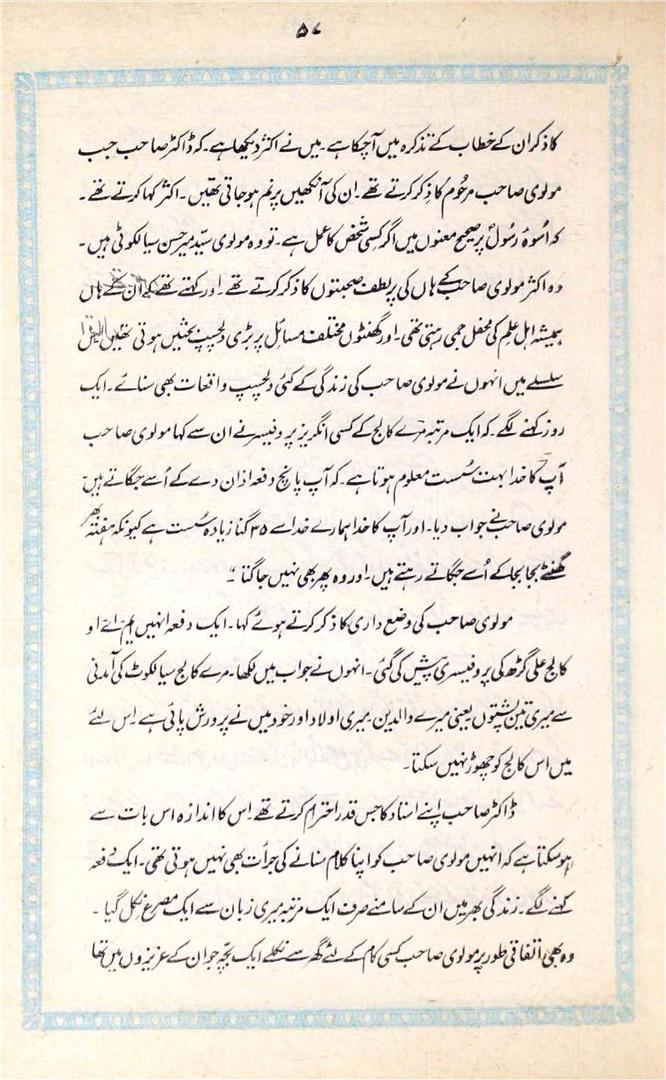 ۵۷
کا ذکر ان کے خطاب کے تذکرہ میں آچکا ہے۔ میں نے اکثر دیکھا ہے۔ کہ ڈاکٹر صاحب جب
مولوی صاحب مرحوم کا ذکر کرتے تھے۔ ان کی آنکھیں پرنم ہو جاتی تھیں۔ اکثر کہا کرتے تھے۔
کہ اُسوۂ رسولؐ پر صحیح معنوں میں اگر کسی شخص کا عمل ہے۔ تو وہ مولوی سید میر حسن سیالکوٹی ہیں۔
وہ اکثر مولوی صاحب کے ہاں کی پرلطف صحبتوں کا ذکر کرتے تھے۔ اور کہتے تھے کہ ان کے ہاں
ہمیشہ اہل علم کی محفل جمی رہتی تھی۔ اور گھنٹوں مختلف مسائل پر بڑی دلچسپ بحثیں ہوتی تھیں۔ اس
سلسلے میں انہوں نے مولوی صاحب کی زندگی کے کئی دلچسپ واقعات بھی سنائے۔ ایک
روز کہنے لگے۔ کہ ایک مرتبہ مرے کالج کے کسی انگریز پروفیسر نے ان سے کہا مولوی صاحب
آپ کا خدا بہت سُست معلوم ہوتا ہے۔ کہ آپ پانچ دفعہ اذان دے کے اُسے جگاتے ہیں
مولوی صاحب نے جواب دیا۔ اور آپ کا خدا ہمارے خدا سے ۳۵ گنا زیادہ سُست ہے کیونکہ ہفتہ بھر
گھنٹے بجا بجا کے اُسے جگاتے رہتے ہیں۔ اور وہ پھر بھی نہیں جاگتا"۔
مولوی صاحب کی وضع داری کا ذکر کرتے ہوئے کہا۔ ایک دفعہ انہیں ایم۔ اے۔ او
کالج علی گڑھ کی پروفیسری پیش کی گئی۔ انہوں نے جواب میں لکھا۔ مرے کالج سیالکوٹ کی آمدنی
سے میری تین پشتوں یعنی میرے والدین۔ میری اولاد اور خود میں نے پرورش پائی ہے۔ اس لئے
میں اس کالج کو چھوڑ نہیں سکتا۔
ڈاکٹر صاحب اپنے استاد کا جس قدر احترام کرتے تھے۔ اس کا اندازہ اس بات سے
ہو سکتا ہے کہ انہیں مولوی صاحب کو اپنا کلام سنانے کی جرأت بھی نہیں ہوتی تھی۔ ایک دفعہ
کہنے لگے۔ زندگی بھر میں ان کے سامنے صرف ایک مرتبہ میری زبان سے ایک مصرع نکل گیا۔
وہ بھی اتفاقی طور پر مولوی صاحب کسی کام کے لئے گھر سے نکلے ایک بچہ جو ان کے عزیزوں میں تھا